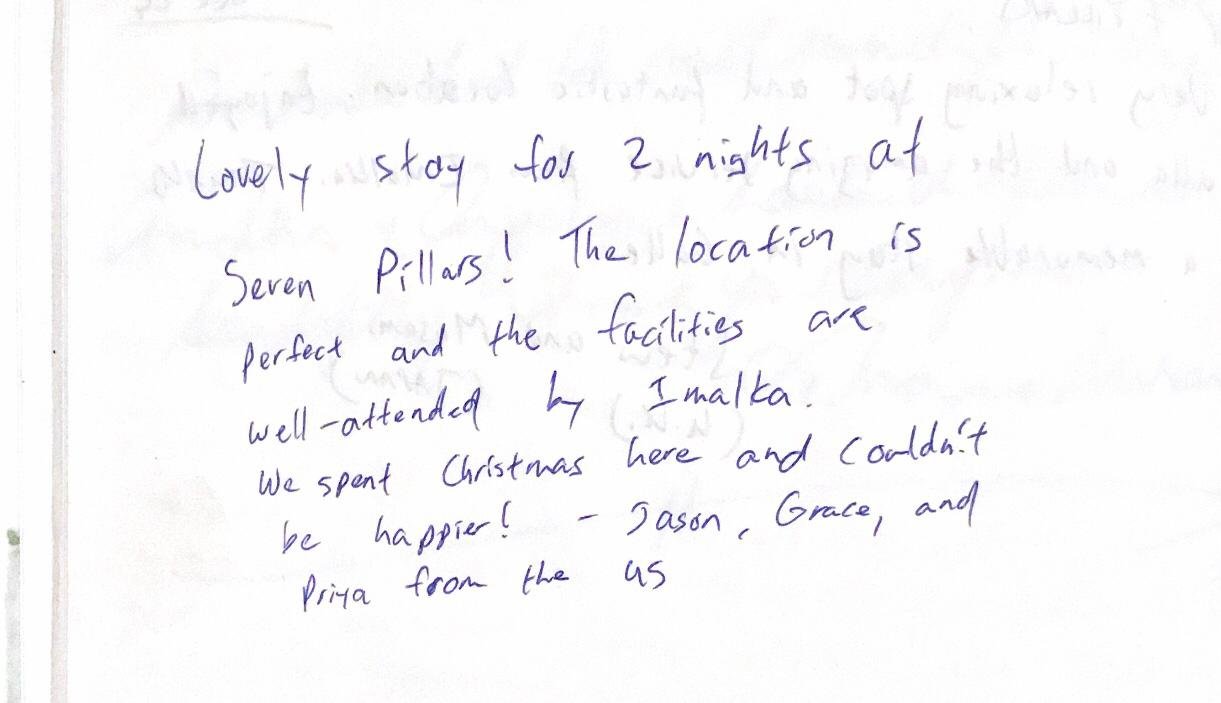 Lovely stay for 2 nights at
Seven Pillars! The location is
perfect and the facilities are
well-attended by Imalka.
We spent Christmas here and couldn't
be happier! - Jason, Grace, and
Priya from the US